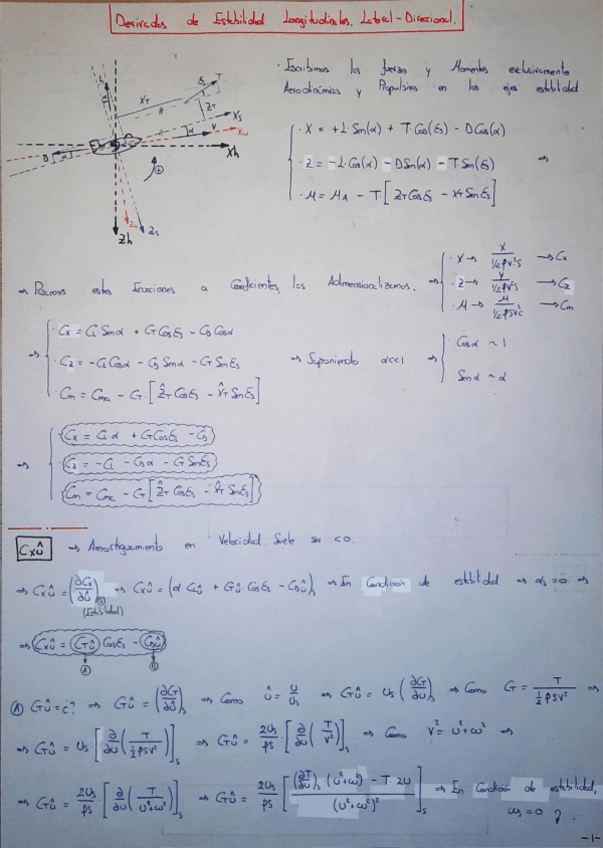 Derivadas de Estabilidad Longitudinales. Lateral-Direccional.
· Escribimos las fuerzas y Momentos exclusivamente
Aerodinámicas y Propulsivas en los ejes estabilidad
L
εs
T
XT
ZT
Xs
V
Xw
Xh
D
α
Zw
Zs
Zh
· X = +L·Sen(α) + T·Cos(εs) - DCos(α)
· Z = -L·Cos(α) - DSen(α) - T·Sen(εs) ⇒
· M = MA - T·[ZT Cosεs - XT Senεs]
⇒ Pasamos estas Ecuaciones a Coeficientes, las Adimensionalizamos. ⇒
· X → X / ½ρV²S → Cx
· Z → / ½ρV²S → Cz
· M → M / ½ρSV²c → Cm
⇒ · Cx = CL Senα + CT Cosεs - CD Cosα
· Cz = -CL Cosα - CD Senα - CT Senεs
· Cm = CmA - CT·[ẐT Cosεs - X̂T Senεs]
⇒ Suponiendo α<<1 ⇒ · Cosα ~ 1
· Senα ~ α
⇒ · Cx = CL·α + CT Cosεs - CD
· Cz = -CL - CDα - CT Senεs
· Cm = CmA - CT·[ẐT Cosεs - X̂T Senεs]
Cxû → Amortiguamiento en Velocidad. Suele ser <0.
⇒ Cxû = (∂Cx/∂û)s ⇒ Cxû = (α·CLû + CTû·Cosεs - CDû)s ⇒ En Condición de estabilidad ⇒ αs = 0 ⇒
(Estabilidad)
⇒ Cxû = CTû Cosεs - CDû
A B
A CTû = ¿? ⇒ CTû = (∂CT/∂û)s ⇒ Como û = u/us ⇒ CTû = us(∂CT/∂u)s ⇒ Como CT = T / ½ρSV² ⇒
⇒ CTû = us·[∂/∂u (T / ½ρSV²)]s ⇒ CTû = 2us/ρS·[∂/∂u (T/V²)]s ⇒ Como V² = u²+ω² ⇒
⇒ CTû = 2us/ρS·[∂/∂u (T / u²+ω²)]s ⇒ CTû = 2us/ρS [(∂T/∂u)s·(u²+ω²) - T·2u / (u²+ω²)²]s ⇒ En Condición de estabilidad,
ωs = 0
-1-